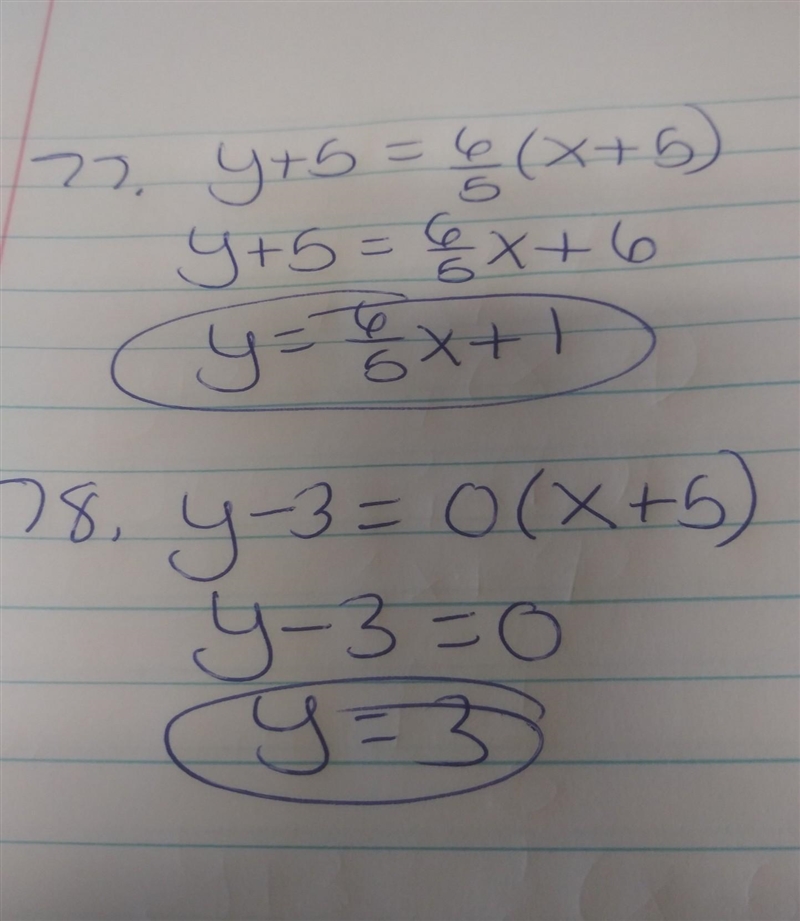 77. y+5 = 6/5(x+5)
y+5 = 6/5x+6
y = 6/5x+1
78. y-3 = 0(x+5)
y-3 = 0
y = 3